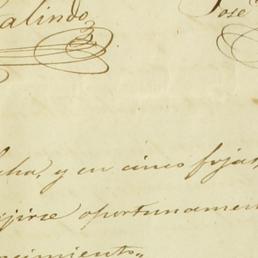 alindo José
cha, y en cinco fojas
jirse oportunamen
cimiento„